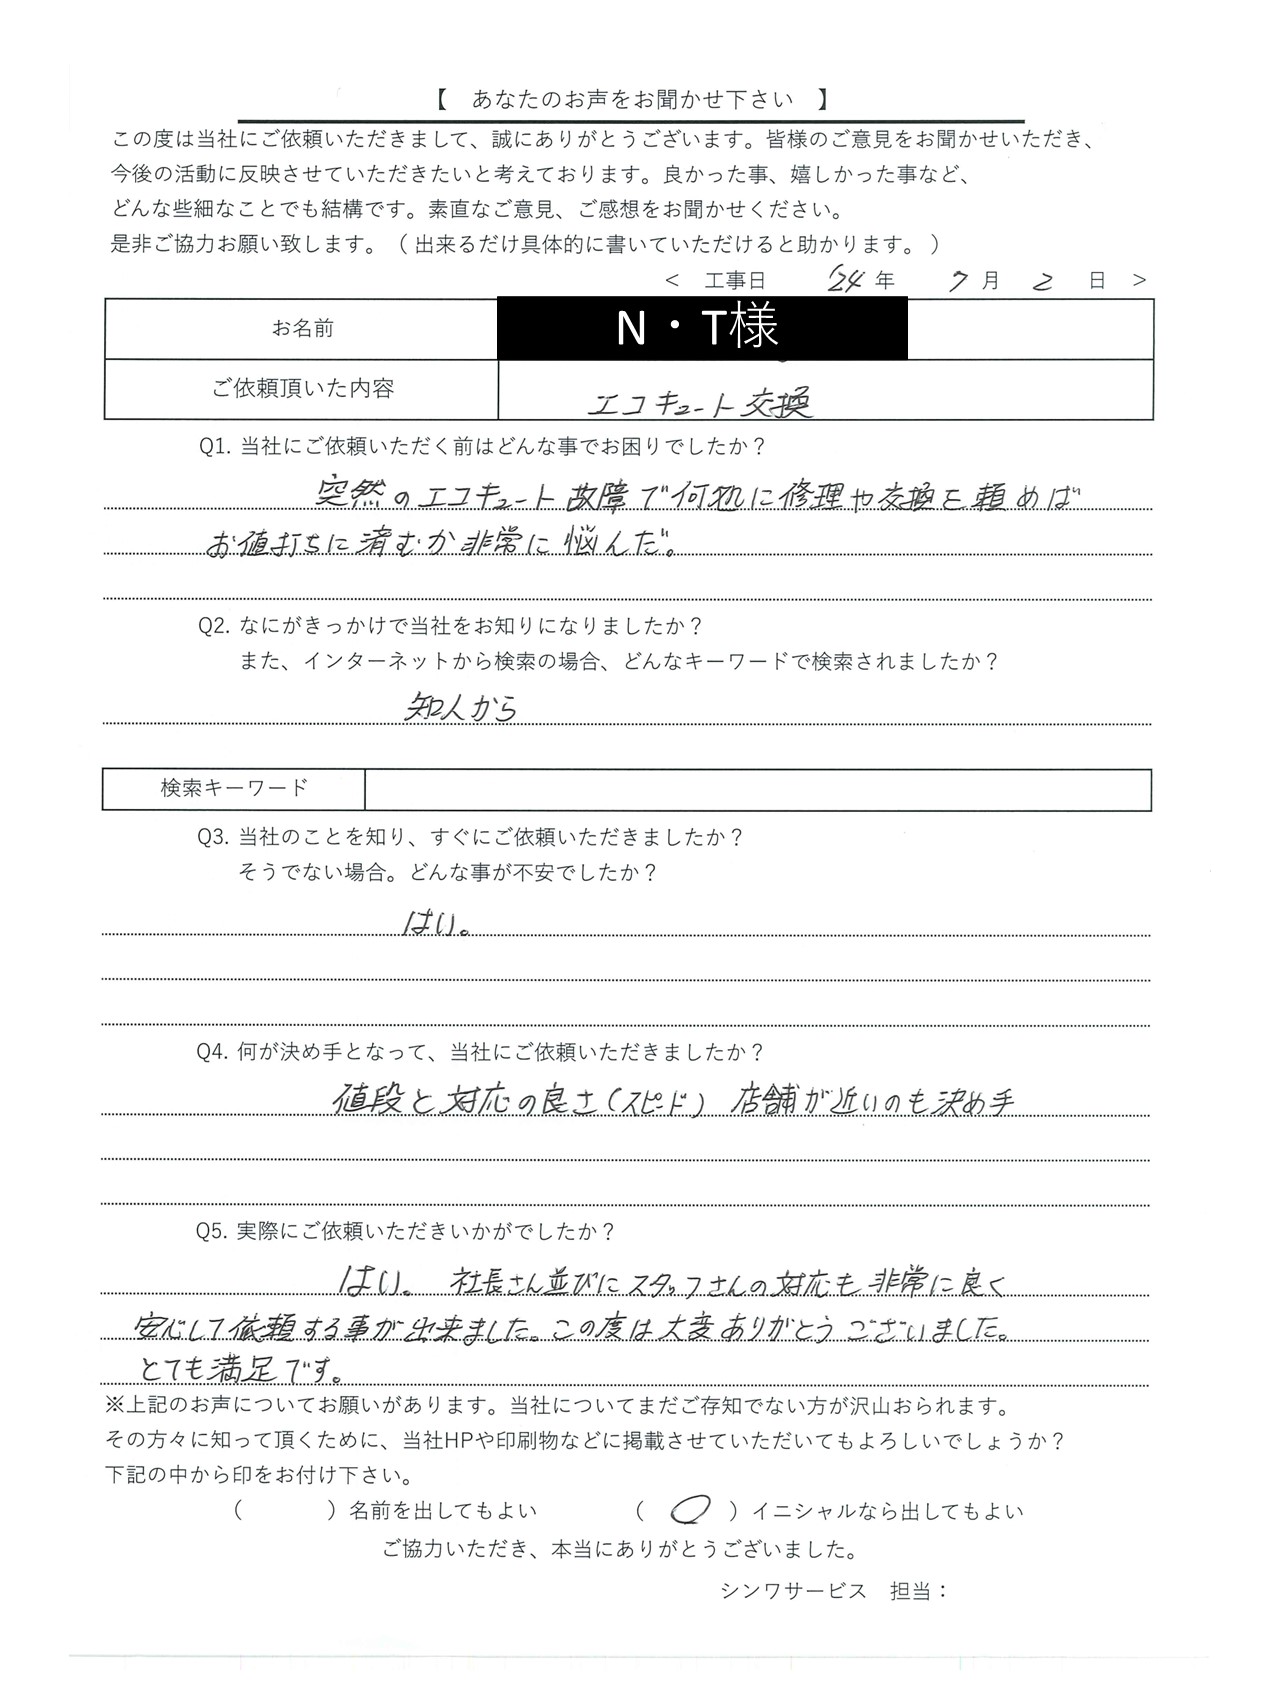 【 あなたのお声をお聞かせ下さい 】
この度は当社にご依頼いただきまして、誠にありがとうございます。皆様のご意見をお聞かせいただき、
今後の活動に反映させていただきたいと考えております。良かった事、嬉しかった事など、
どんな些細なことでも結構です。素直なご意見、ご感想をお聞かせください。
是非ご協力お願い致します。（ 出来るだけ具体的に書いていただけると助かります。 ）
< 工事日 '24 年 7 月 2 日 >
お名前 N・T様
ご依頼頂いた内容 エコキュート交換
Q1. 当社にご依頼いただく前はどんな事でお困りでしたか？
突然のエコキュート故障で何処に修理や交換を頼めば
お値打ちに済むか非常に悩んだ。
Q2. なにがきっかけで当社をお知りになりましたか？
また、インターネットから検索の場合、どんなキーワードで検索されましたか？
知人から
検索キーワード
Q3. 当社のことを知り、すぐにご依頼いただきましたか？
そうでない場合。どんな事が不安でしたか？
はい。
Q4. 何が決め手となって、当社にご依頼いただきましたか？
値段と対応の良さ（スピード） 店舗が近いのも決め手
Q5. 実際にご依頼いただきいかがでしたか？
はい。 社長さん並びにスタッフさんの対応も非常に良く
安心して依頼する事が出来ました。この度は大変ありがとうございました。
とても満足です。
※上記のお声についてお願いがあります。当社についてまだご存知でない方が沢山おられます。
その方々に知って頂くために、当社HPや印刷物などに掲載させていただいてもよろしいでしょうか？
下記の中から印をお付け下さい。
（ ）名前を出してもよい （ ○ ）イニシャルなら出してもよい
ご協力いただき、本当にありがとうございました。
シンワサービス 担当：